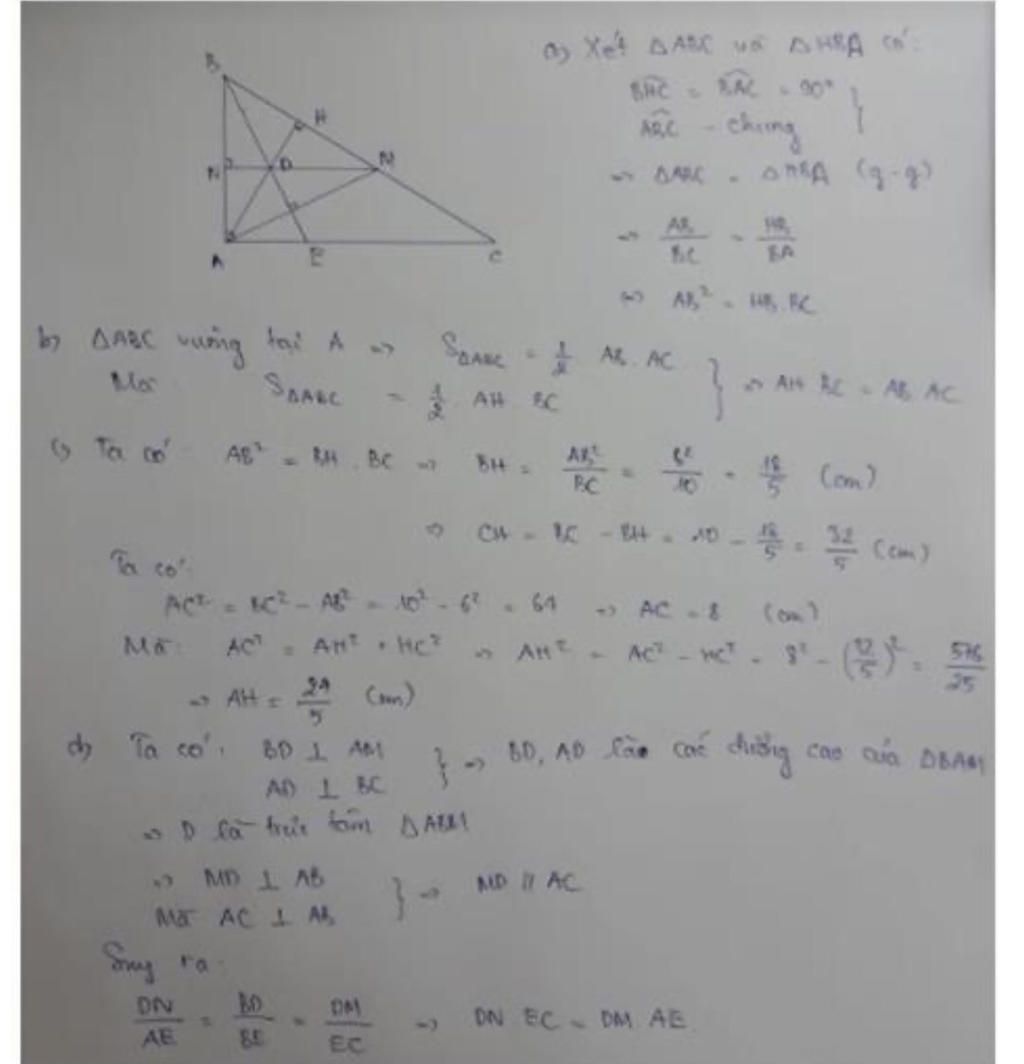 B
H
N D M
A E C
a) Xét ΔABC và ΔHBA có:
BHC = BAC = 90° }
ABC - chung
=> ΔABC ~ ΔHBA (g-g)
=> AB/BC = HB/BA
=> AB² = HB.BC
b) ΔABC vuông tại A => SΔABC = 1/2 AB.AC
Mà SΔABC = 1/2 AH.BC } => AH.BC = AB.AC
c) Ta có AB² = BH.BC => BH = AB²/BC = 6²/10 = 18/5 (cm)
=> CH = BC - BH = 10 - 18/5 = 32/5 (cm)
Ta có:
AC² = BC² - AB² = 10² - 6² = 64 => AC = 8 (cm)
Mà: AC² = AH² + HC² => AH² = AC² - HC² = 8² - (32/5)² = 576/25
=> AH = 24/5 (cm)
d) Ta có: BD ⊥ AM
AD ⊥ BC } => BD, AD là các đường cao của ΔBAM
=> D là trực tâm ΔABM
=> MD ⊥ AB
Mà AC ⊥ AB } => MD // AC
Suy ra:
DN/AE = BD/BE = DM/EC => DN.EC = DM.AE